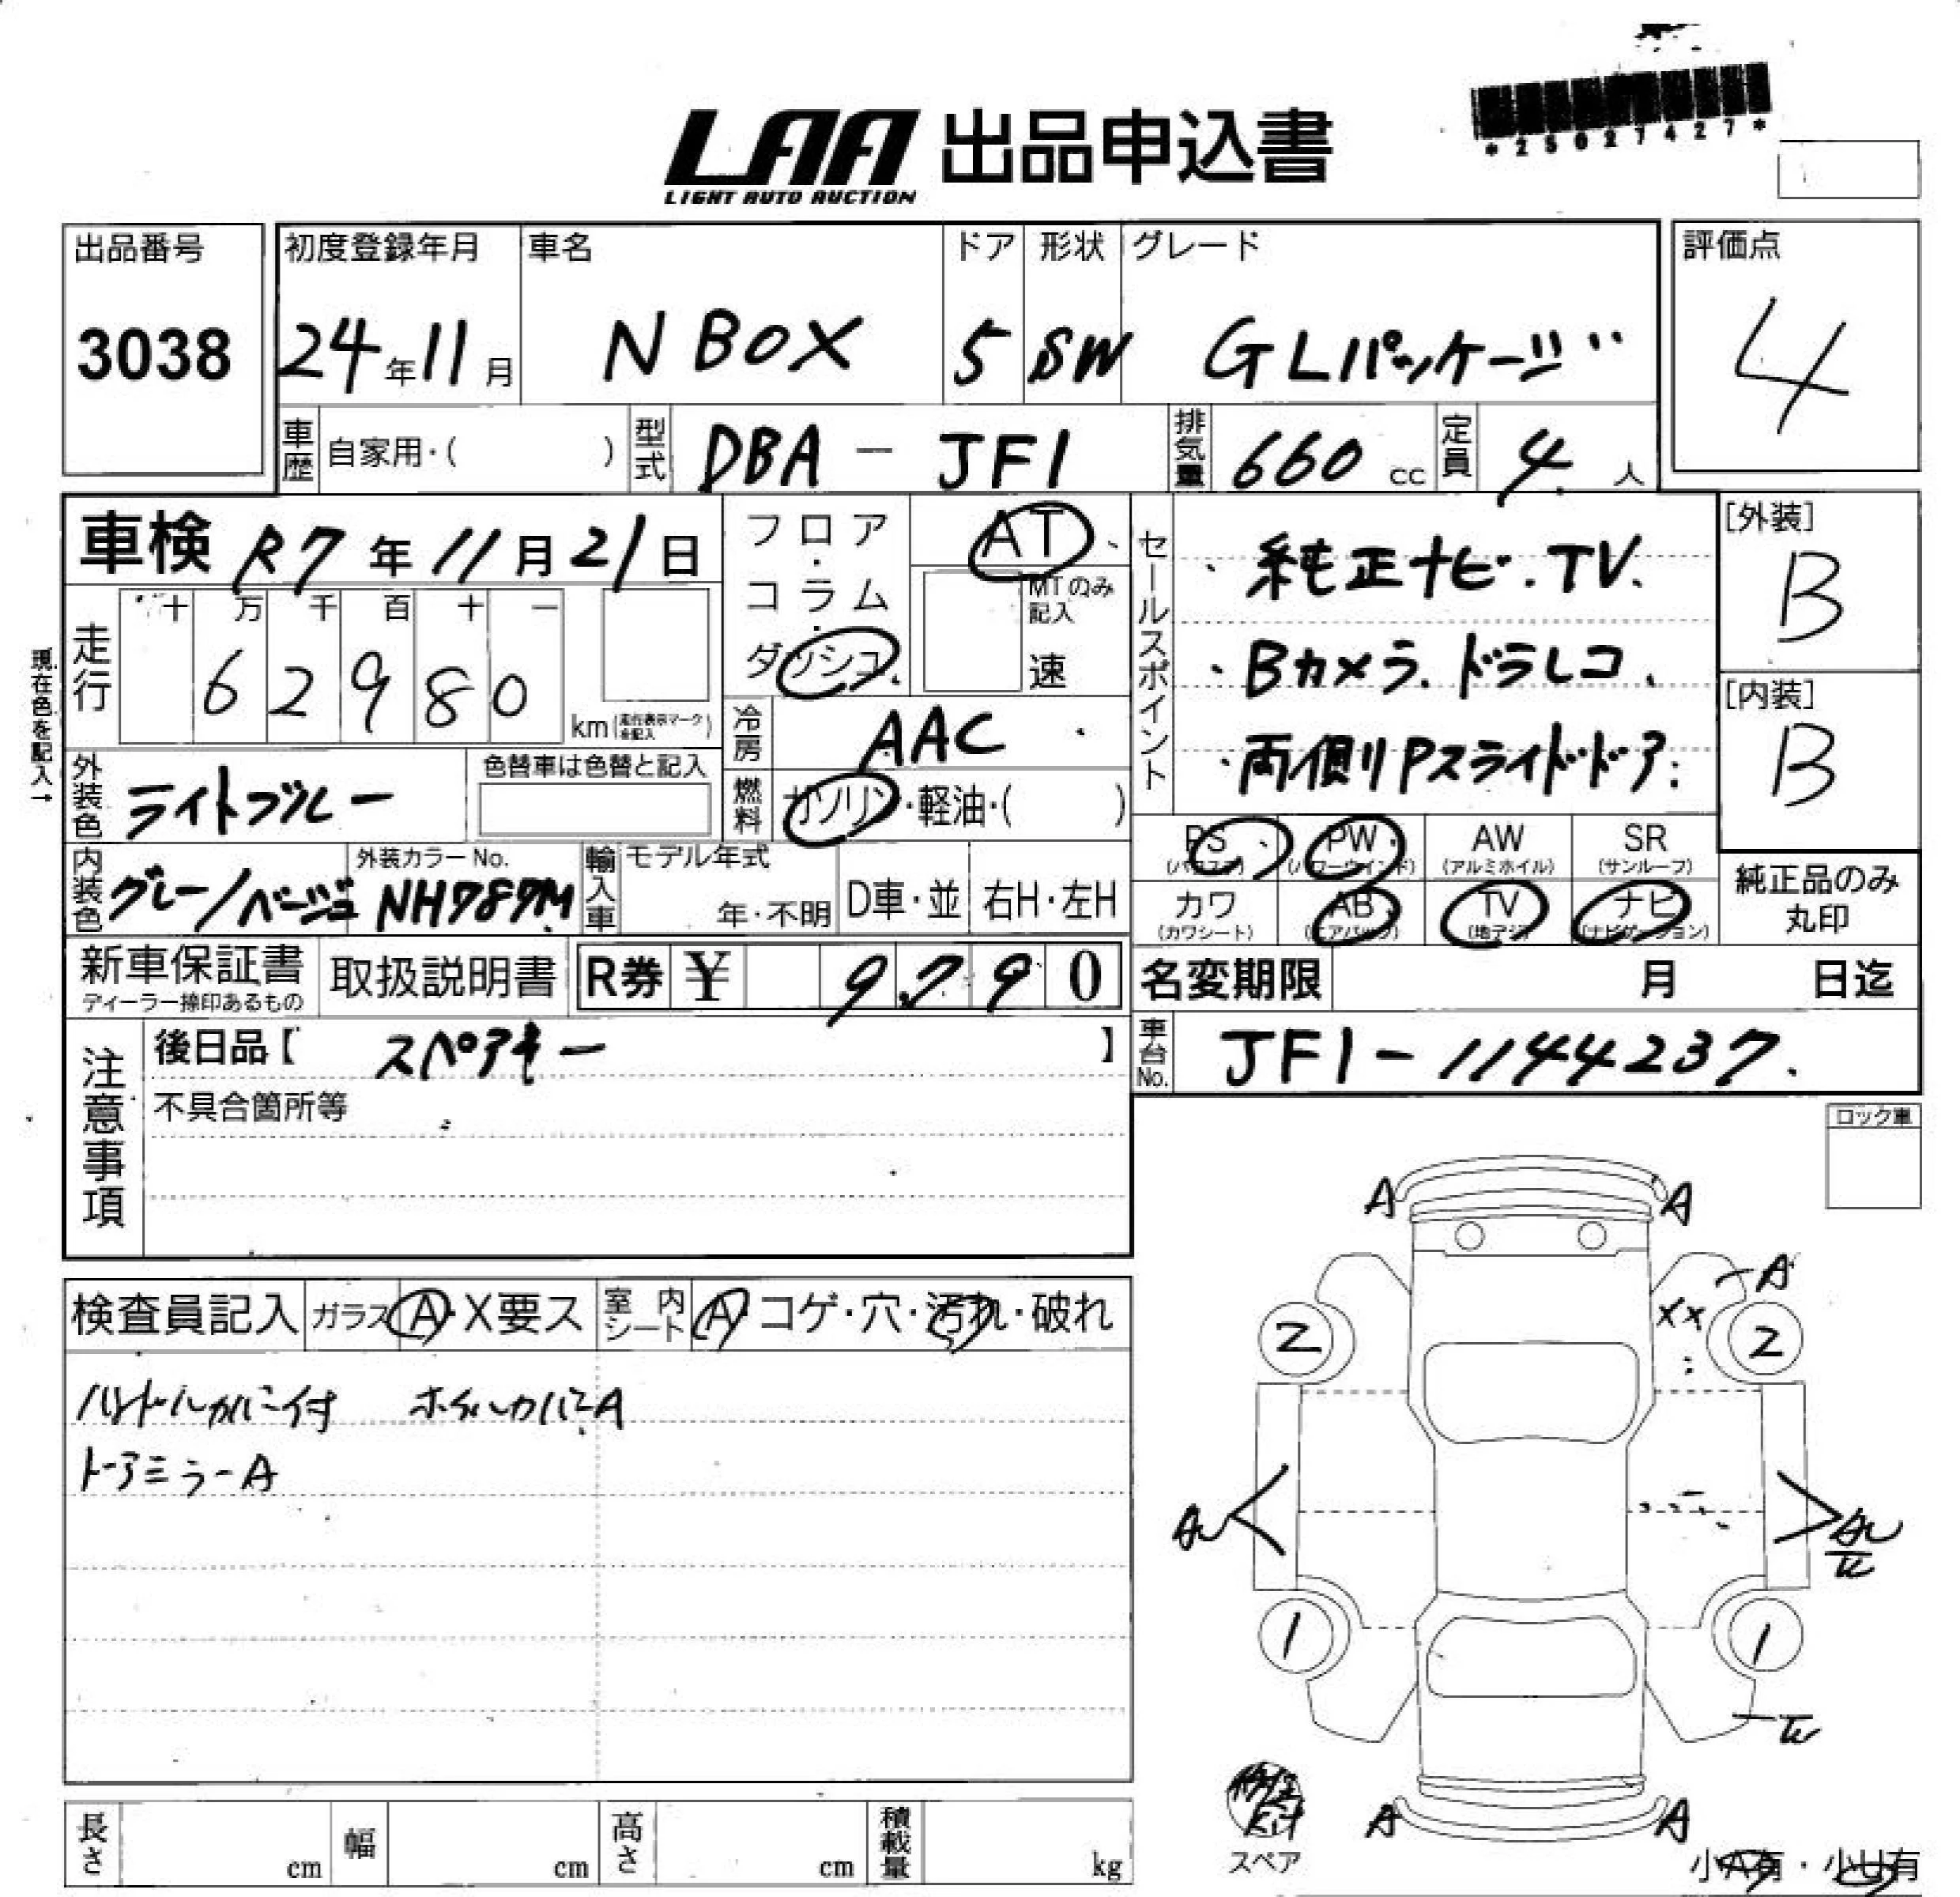 LAA 出品申込書
LIGHT AUTO AUCTION
*25027427*
出品番号
3038
初度登録年月
24年11月
車名
N BOX
ドア
5
形状
SW
グレード
GLパッケージ
評価点
4
車歴
自家用・( )
型式
DBA - JF1
排気量
660 cc
定員
4 人
車検 R7年11月21日
フロア・コラム・ダッシュ
AT
MTのみ記入
速
セールスポイント
純正ナビ.TV.
Bカメラ.ドラレコ.
両側Pスライドドア.
[外装]
B
[内装]
B
現在色を記入→
走行
十 万 千 百 十 一
6 2 9 8 0
km(走行表示マークを記入)
冷房
AAC
外装色
ライトブルー
色替車は色替と記入
燃料
ガソリン・軽油・( )
内装色
グレー/ベージュ
外装カラーNo.
NH787M
輸入車
モデル年式
年・不明
D車・並
右H・左H
PS
(パワステ)
PW
(パワーウインド)
AW
(アルミホイル)
SR
(サンルーフ)
カワ
(カワシート)
AB
(エアバッグ)
TV
(地デジ)
ナビ
(ナビゲーション)
純正品のみ
丸印
新車保証書
ディーラー捺印あるもの
取扱説明書
R券 ¥ 9,790
名変期限 月 日迄
注意事項
後日品【 スペアキー 】
不具合箇所等
車台No.
JF1-1144237.
ロック車
検査員記入
ガラス A・X要ス
室内シート A・コゲ・穴・汚れ・破れ
ハンドルカバー付 ホイルカバーA
ドアミラーA
A A
A
XX
2 2
1 1
A A
スペア
長さ cm
幅 cm
高さ cm
積載量 kg
小A有・小U有